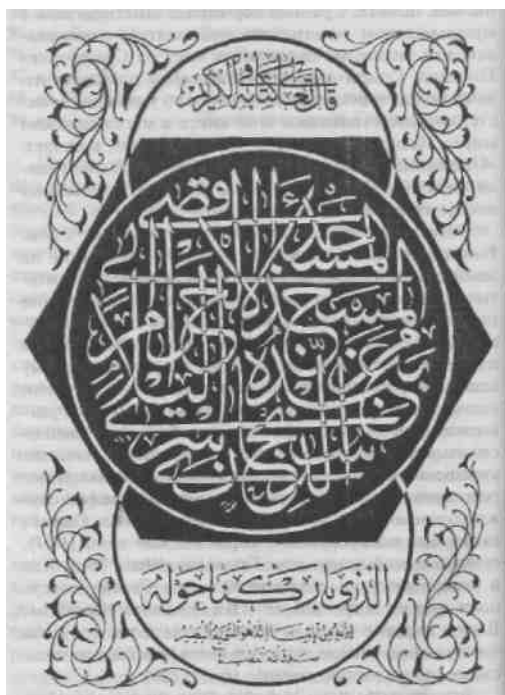 قال تعالى في كتابه الكريم
سبحان الذي أسرى
بعبده ليلا من
المسجد الحرام إلى
المسجد الأقصى
الذي باركنا حوله
لنريه من آياتنا إنه هو السميع البصير
صدق الله العظيم